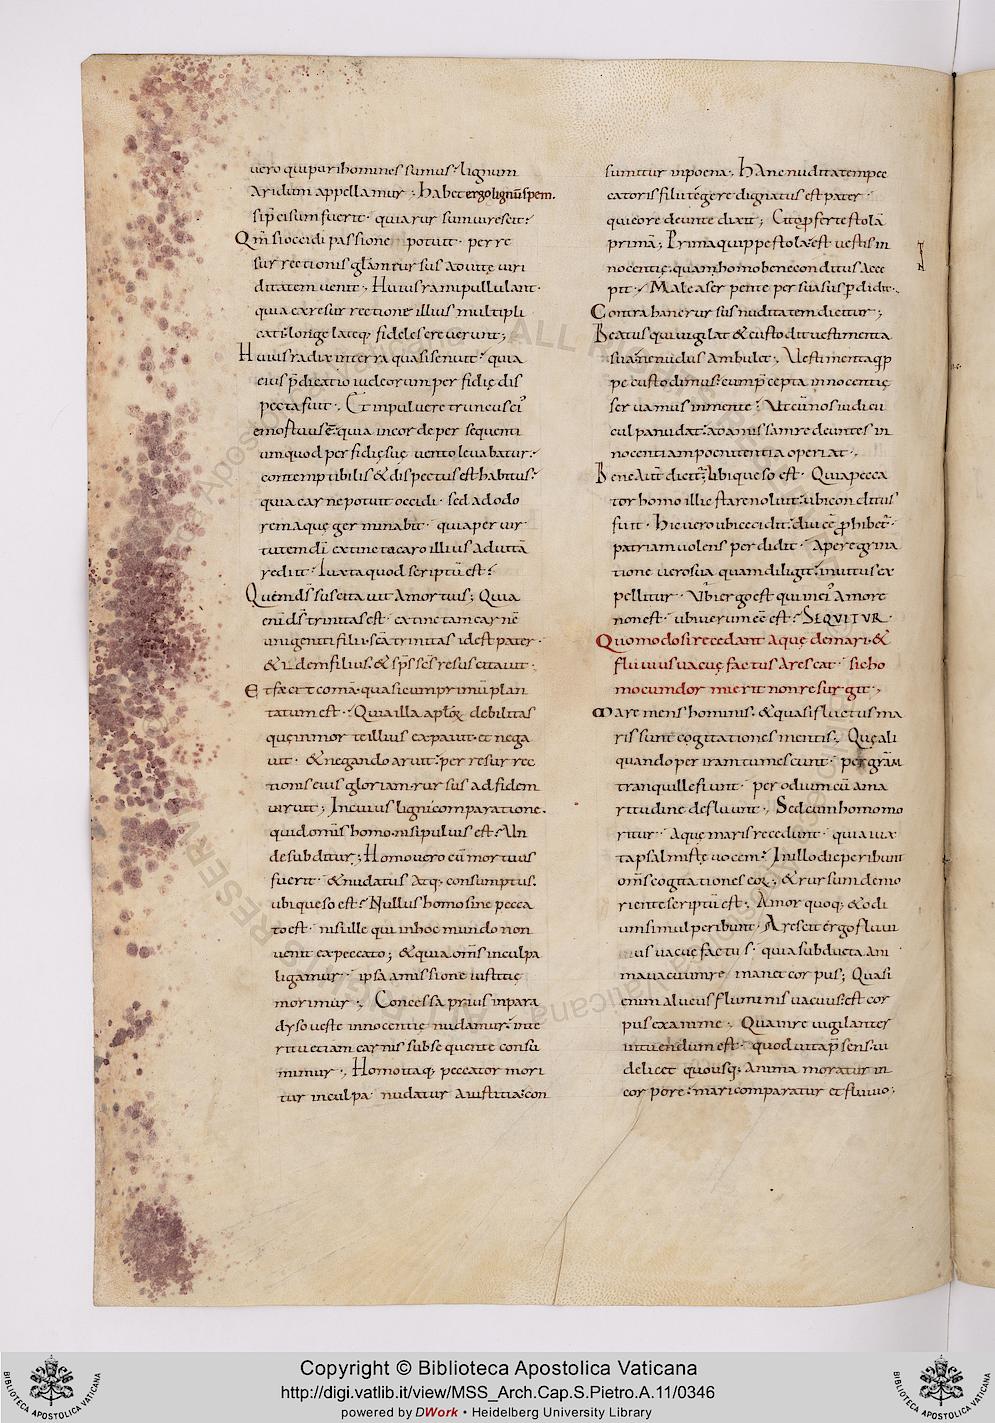 uero qui puri homines sumus? lignum
aridum appellamur; habet ergo lignū spem.
si p̄cisum fuerit· quia rursum uirescit?
Qm̄ si occidi passione potuit· per re
surrectionis glām rursus ad uitę uiri
ditatem uenit; huius rami pullulant·
quia ea resurrectione illius multipli
cati longe lateq; fideles creuerunt;
Huius radix in terra quasi senuit? quia
eius p̄dicatio iudeorum perfidię dis
pecta fuit. Et in puluere truncus ei'
emortuus ē: quia in corde persequenti
um quod perfidię suę uento leuabatur?
contemptibilis & dispectus est habitus?
quia carne potuit occidi· sed ad odo
rem aquę germinabit· quia per uir
tutem dī extincta caro illius ad uitā
rediit· Iuxta quod scriptū est?
Quem dn̄s suscitauit a mortuis; Quia
eni dn̄s trinitas est· extinctam carnē
unigeniti filii· sc̄a trinitas id est pater·
& idem filius· & sp̄s sc̄s resuscitauit·
Et faciet comā· quasi cum primū plan
tatum est? Quia illa aplōꝝ debilitas
quę in morte illius expauit· et nega
uit· & negando aruit? per resurrec
tionis eius gloriam· rursus ad fidem
uiruit; In cuius ligni comparatione.
quid om̄is homo nisi puluis est? Un
de subditur; Homo uero cū mortuus
fuerit· & nudatus atq; consumptus.
ubi quęso est? Nullus homo sine pecca
to est· nisi ille qui in hoc mundo non
uenit ex peccato; & quia om̄s in culpa
ligamur· ipsa amissione iustitię
morimur·; Concessa prius in para
dyso ueste innocentię nudamur? inte
ritu etiam carnis subsequente consu
mimur·; Homo itaq; peccator mori
tur in culpa· nudatur a iustitia: con
sumitur in poena; Hanc nuditatem pec
catoris filii tegere dignatus est pater·
qui eo redeunte dixit; Cito ꝓferte stolā
primā; Prima quippe stola est uestis in
nocentię· quam homo bene conditus acce
pit·; Male a serpente persuasus ꝑdidit·.
Contra hanc rursus nuditatem dicitur·;
Beatus qui uigilat & custodit uestimenta
sua· ne nudus ambulet·; Vestimenta q̄p
pe custodimus? cum p̄cepta innocentię
seruamus in mente? Ut cū nos iudici
culpa nudat: ad amissam redeuntes in
nocentiam poenitentia operiat·;
Bene aut̄ dicit? ubi quęso est· Quia pecca
tor homo illic stare noluit? ubi conditus
fuit· Hic uero ubi cecidit? diu eē ꝓhibet̄·
patriam uolens perdidit· a peregrina
tione uero sua quam diligit? inuitus ex
pellitur· Ubi ergo est qui in ei' amore
non est· ubi uerum eē est? SEQUITUR·
Quomodo si recedant aquę de mari· &
fluuius uacuę factus arescat· sic ho
mo cum dormierit non resurgit·;
Mare mens hominis· & quasi fluctus ma
ris sunt cogitationes mentis; Quę ali
quando per iram tumescunt· per grām
tranquille fiunt· per odium cū ama
ritudine defluunt·; Sed cum homo mo
ritur· aquę maris recedunt· quia iux
ta psalmistę uocem? In illo die peribunt
om̄s cogitationes eoꝝ; & rursum de mo
riente scriptū est; Amor quoq; & odi
um simul peribunt· Arescit ergo fluui
us uacuę factus· quia subducta ani
ma uacuum remanet corpus; Quasi
enim alueus fluminis uacuus est cor
pus exanime·; Qua in re uigilanter
intuendum est· quod uita p̄sens· ui
delicet quousq; anima moratur in
corpore? mari comparatur et fluuio;
Copyright © Biblioteca Apostolica Vaticana
http://digi.vatlib.it/view/MSS_Arch.Cap.S.Pietro.A.11/0346
powered by DWork • Heidelberg University Library
BIBLIOTECA APOSTOLICA VATICANA
BIBLIOTECA APOSTOLICA VATICANA